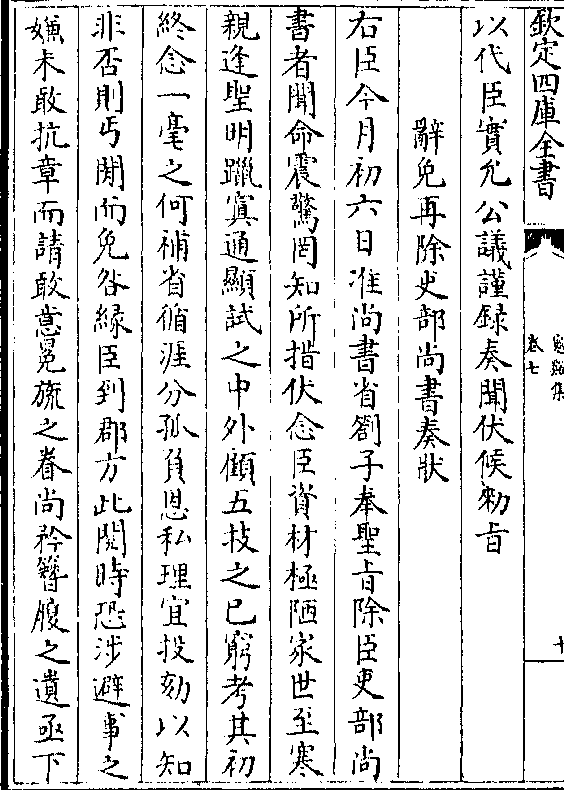 欽定四庫全書
卷七
以代臣實允公議謹録奏聞伏候勅旨
辭免再除吏部尚書奏狀
右臣今月初六日准尚書省劄子奉聖旨除臣吏部尚
書者聞命震驚罔知所措伏念臣資材極陋家世至寒
親逢聖明躐寘通顯試之中外顧五技之已窮考其初
終念一毫之何補省循涯分孤負恩私理宜投劾以知
非否則丐閑而免咎緣臣到郡方此閱時恐涉避事之
嫌未敢抗章而請敢意冕旒之眷尚矜簪履之遺亟下